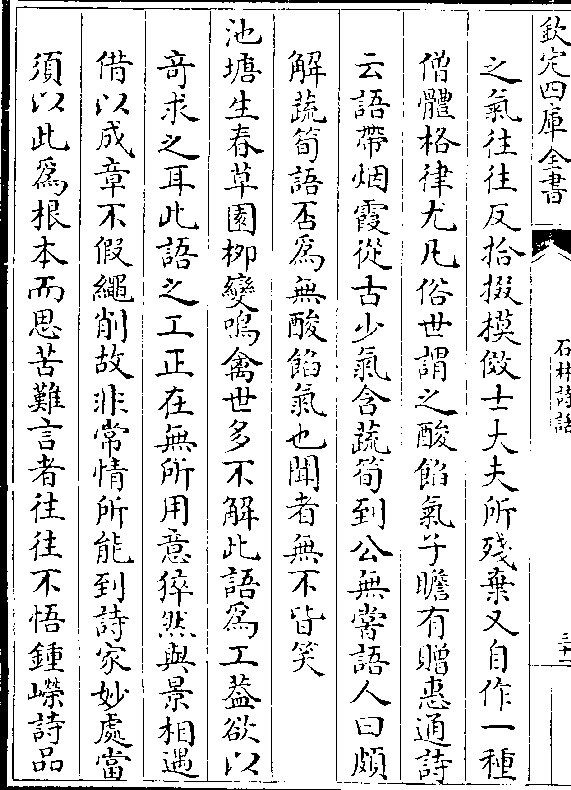 欽定四庫全書
石林詩話
三十一
之氣往往反拾掇模倣士大夫所殘棄又自作一種
僧體格律尤凡俗世謂之酸餡氣子瞻有贈惠通詩
云語帶烟霞從古少氣含蔬筍到公無嘗語人曰頗
解蔬筍語否為無酸餡氣也聞者無不皆笑
池塘生春草園栁變鳴禽世多不解此語為工葢欲以
竒求之耳此語之工正在無所用意猝然與景相遇
借以成章不假繩削故非常情所能到詩家妙處當
須以此為根本而思苦難言者往往不悟鍾嶸詩品